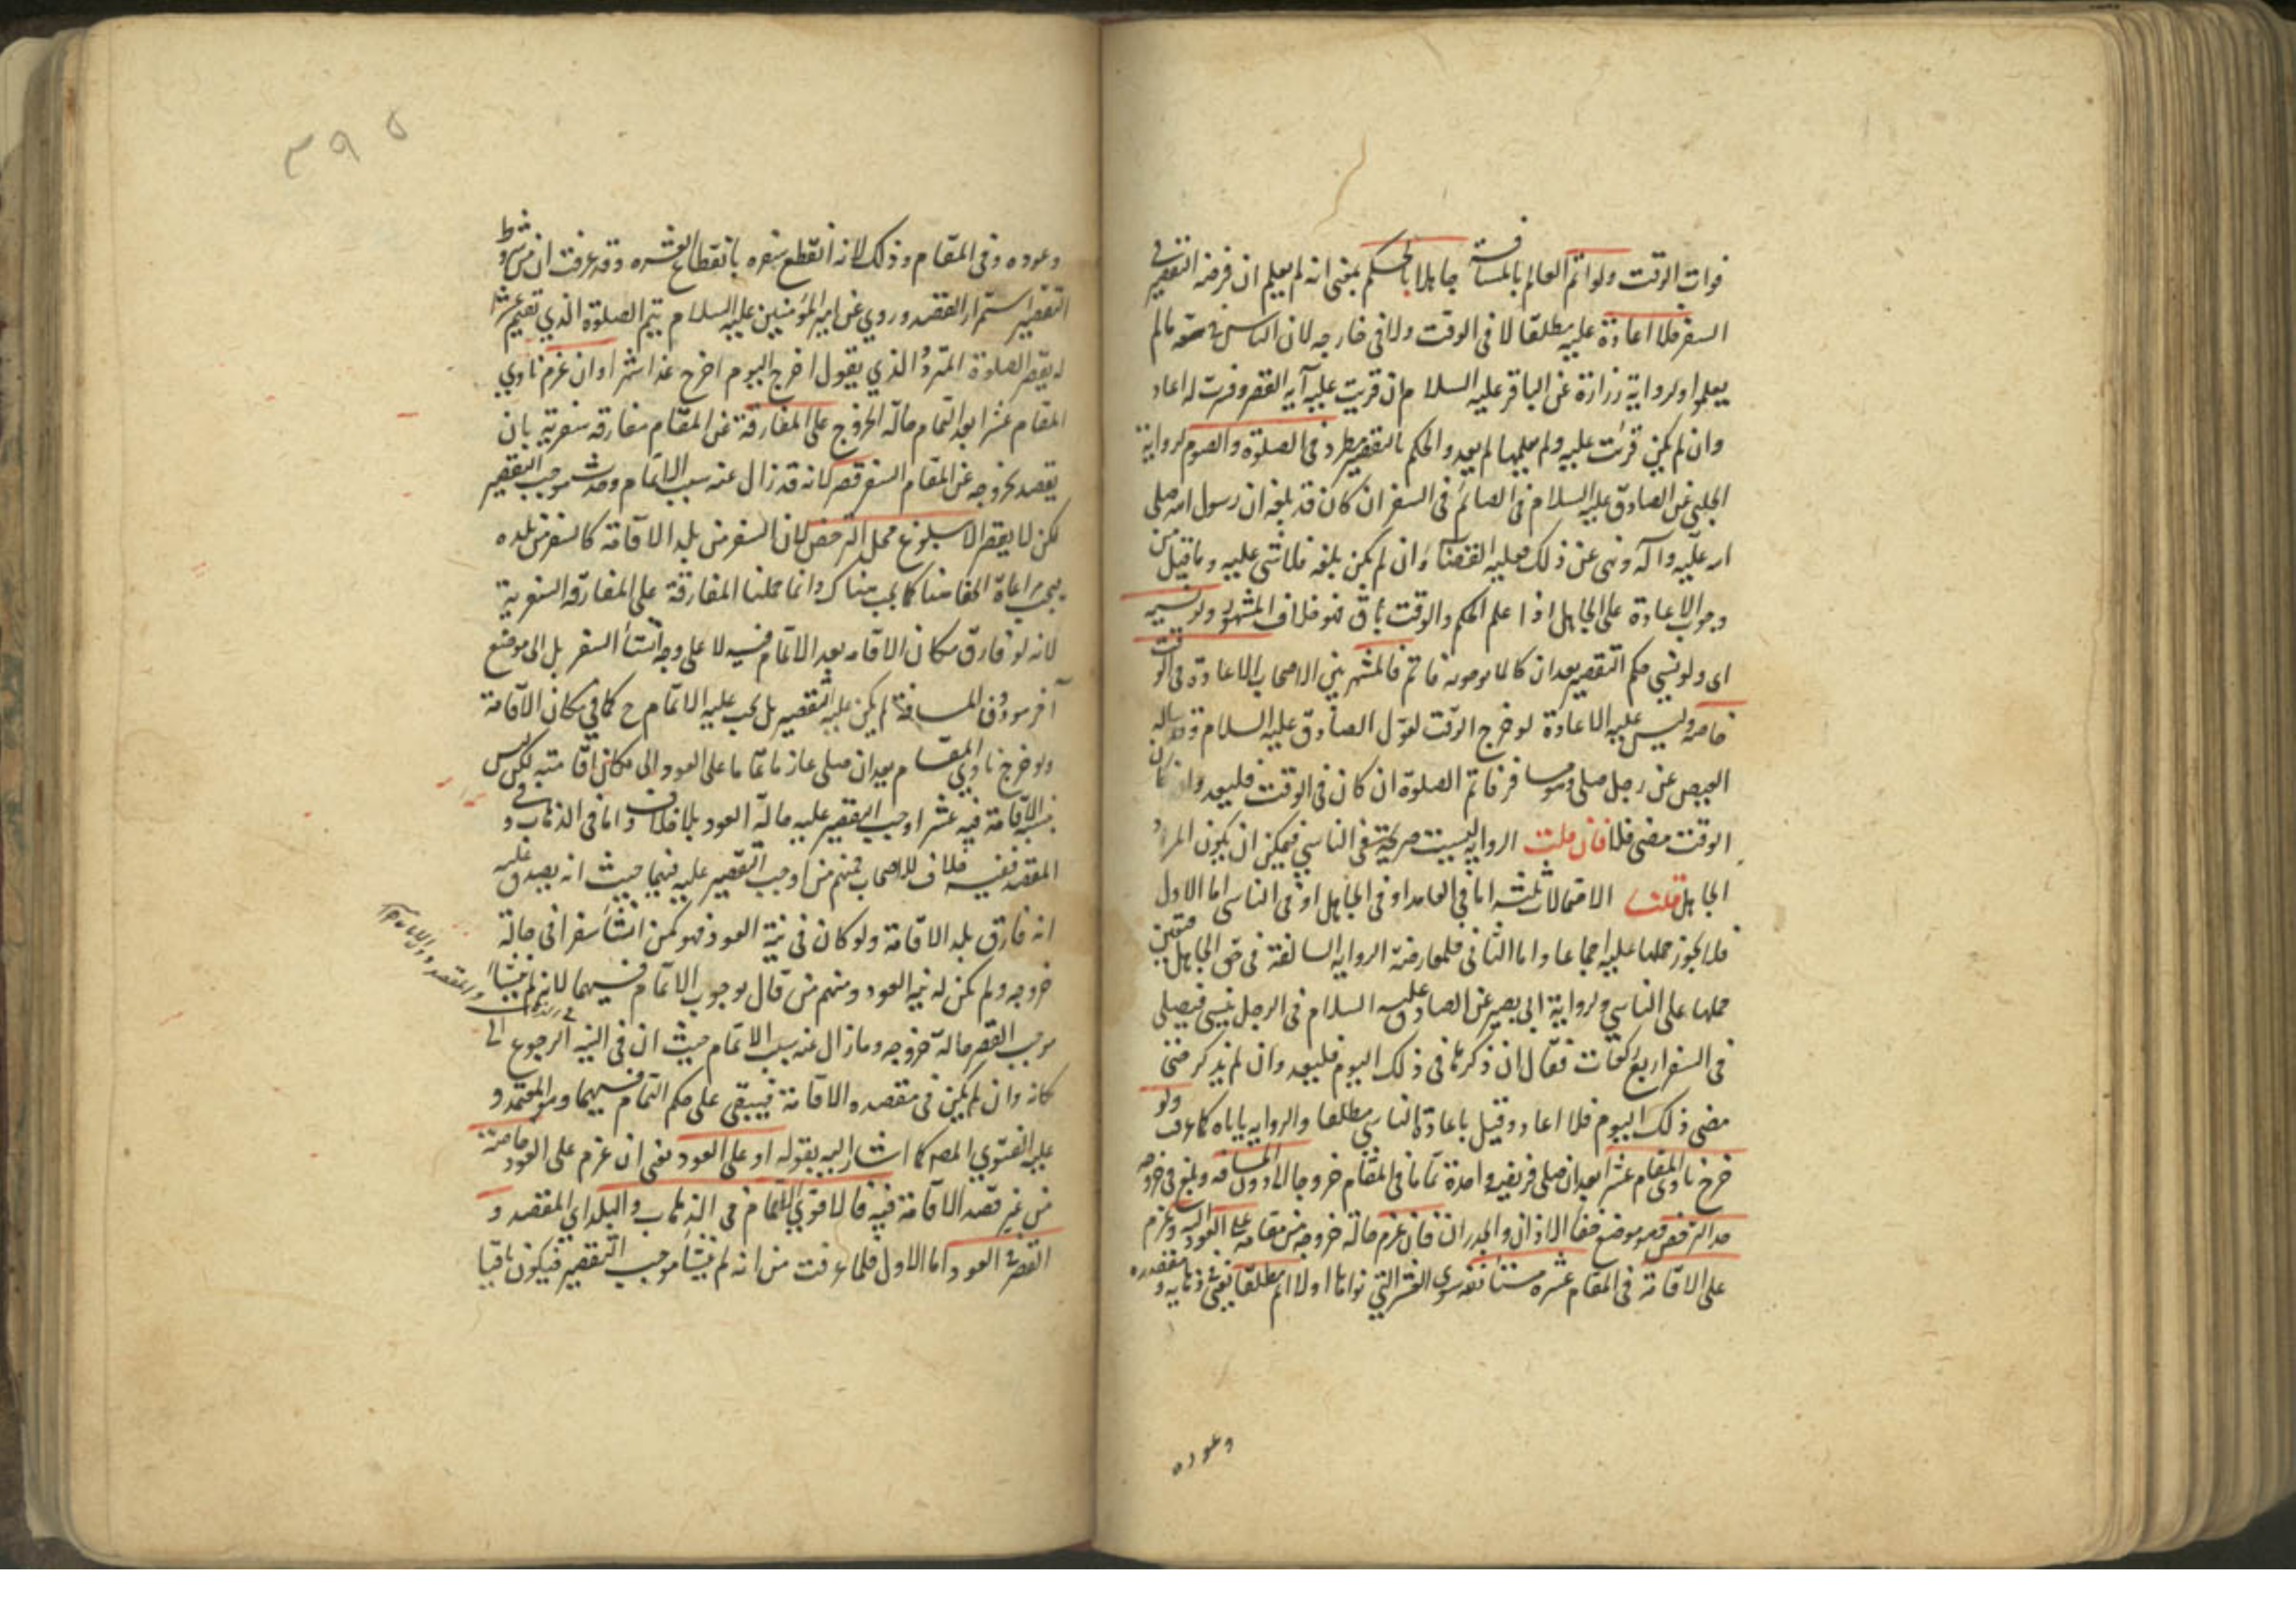 فوات الوقت ولو اتم العالم بالمسافة جاهلا بالحكم بمعنى انه لم يعلم ان فرضه التقصير في
السفر فلا اعادة عليه مطلقا لا في الوقت ولا في خارجه لان الناس في سعة مالم
يعلموا ولرواية زرارة عن الباقر عليه السلام ان قريت عليه آية القصر وفسرت له اعاد
وان لم يكن قرئت عليه ولم يعلمها لم يعد والحكم بالتقصير مطرد في الصلوة والصوم لرواية
الحلبي عن الصادق عليه السلام في الصائم في السفر ان كان قد بلغه ان رسول الله صلى
الله عليه وآله ونهى عن ذلك فعليه القضاء وان لم يكن بلغه فلا شي عليه وما قيل من
وجوب الاعادة على الجاهل اذا علم الحكم والوقت باق فهو خلاف المشهور ولو نسيه
اى ولو نسي حكم التقصير بعد ان كان فاتم فالمشهور بين الاصحاب الاعادة في الوقت
خاصة وليس عليه الاعادة لو خرج الوقت لقول الصادق عليه السلام وقد ساله
العيص عن رجل صلى وهو مسافر فاتم الصلوة ان كان في الوقت فليعد وان كان
الوقت مضى فلا فان قلت الرواية ليست صريحة في الناسي فيمكن ان يكون المراد
الجاهل قلنا الاحتمالات ثلثة اما في العامد او في الجاهل او في الناسي اما الاول
فلا يجوز حملها عليه اجماعا واما الثاني فلمعارضة الرواية السالفة في حق الجاهل فتعين
حملها على الناسي ولرواية ابي بصير عن الصادق عليه السلام في الرجل ينسى فيصلي
في السفر اربع ركعات فقال ان ذكرها في ذلك اليوم فليعد وان لم يذكر حتى
مضى ذلك اليوم فلا اعاد وقيل باعادة الناسي مطلقا والرواية ياباه كما عرف ولو
خرج ناوى المقام عشرا بعد ان صلى فريضة واحدة تماما في المقام خروجا الى ما دون المسافة وبلغ في خروجه
حد الترخص وهو موضع خفاء الاذان والجدران فان عزم حالة خروجه من مقامه على العود اليه وعزم
على الاقامة في المقام عشرة مستانفة سوى العشر التي نواها اولا اتم مطلقا يعني في ذهابه ومقصده
وعوده
٣٩٥
وعوده وفي المقام وذلك لانه انقطع سفره بانقطاع العشرة وقد عرفت ان من شروط
التقصير استمرار القصد وروي عن امير المؤمنين عليه السلام يتم الصلوة الذي تقيم عشرا
له يقصر الصلوة المتردد الذي يقول اخرج اليوم اخرج غدا شهرا وان عزم ناوي
المقام عشرا بعد التمام حالة الخروج على المفارقة عن المقام مفارقة سفرية بان
يقصد بخروجه عن المقام السفر قصر لانه قد زال عنه سبب الاتمام وحدث موجب التقصير
لكن لا يقصر الا ببلوغ محل الترخص لان السفر من بلد الاقامة كالسفر من بلده
يجب مراعاة الخفا هنا كما يجب هناك وانما حملنا المفارقة على المفارقة السفرية
لانه لو فارق مكان الاقامه بعد الاتمام فيه لا على وجه انشاء السفر بل الى موضع
آخر هو دون المسافة لم يكن عليه التقصير بل يجب عليه الاتمام ح كما في مكان الاقامة
ولو خرج ناوي المقام بعد ان صلى عازما على العود الى مكان اقامته لكن ليس
نية الاقامة فيه عشرا وجب التقصير عليه حالة العود بلا خلاف واما في الذهاب و
المقصد نفسه خلاف للاصحاب فمنهم من اوجب التقصير عليه فيهما حيث انه يصدق عليه
انه فارق بلد الاقامة ولو كان في نية العود فهو كمن انشأ سفرا في حالة
خروجه ولم يكن له نية العود ومنهم من قال بوجوب الاتمام فيهما لانه لم ينشأ
موجب القصر حالة خروجه وما زال عنه سبب الاتمام حيث ان في النية الرجوع الى
كانه وان لم يكن في مقصده الاقامة فيبقى على حكم التمام فيهما وهو المعتمد و
عليه الفتوي المص كما اشار اليه بقوله او على العود يعني ان عزم على العود خاصة
من غير قصد الاقامة فيه فالاقوي التمام في الذهاب والبلد اي المقصد و
القصر في العود اما الاول فلما عرفت من انه لم ينشأ موجب التقصير فيكون باقيا